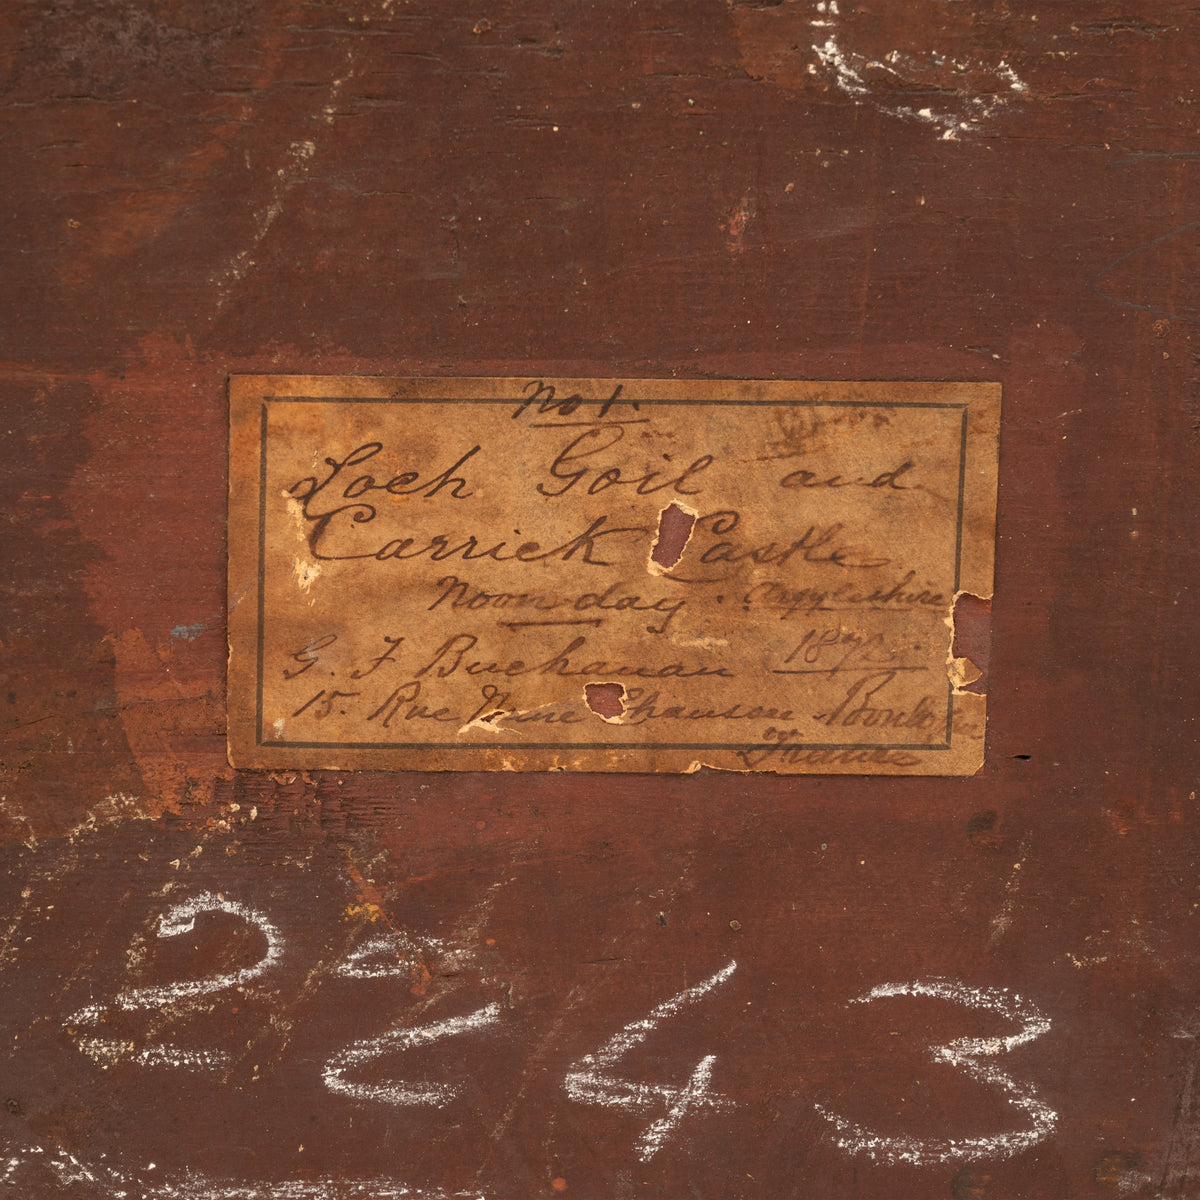 No 1.
Loch Goil and
Carrick Castle
Noonday. Argyleshire
G. F Buchanan 187
15. Rue
France
2243